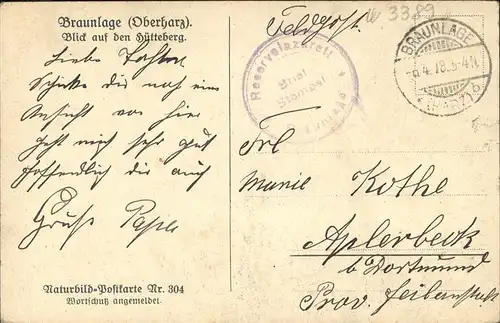 Braunlage (Oberharz).
Blick auf den Hütteberg.
Feldpost.
3389
Reservelazarett
Brief
Stempel
Braunlage
BRAUNLAGE
4.18.3-4N
(HARZ) b
Liebe Tochter
Schicke dir noch eine
Ansicht von hier
geht mich sehr gut
hoffendlich dir auch
Gruß Papa
Frl
Marie Kothe
Aplerbeck
b Dortmund
Prov.
Naturbild-Postkarte Nr. 304
Wortschutz angemeldet.